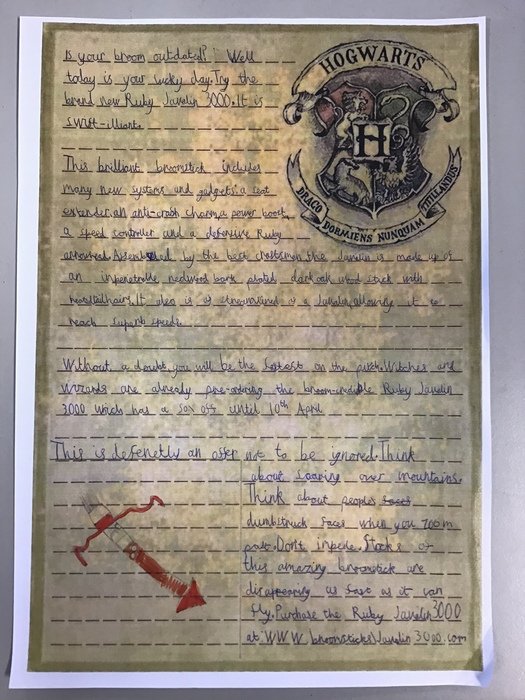 Is your broom outdated? Well
today is your lucky day. Try the
brand new Ruby Javelin 3000. It is
swift-illiant.
HOGWARTS
H
DRACO DORMIENS NUNQUAM TITILLANDUS
This brilliant broomstick includes
many new systems and gadgets: a seat
extender, an anti-crash charm, a power boost,
a speed controller and a defensive Ruby
arrowhead. Assembled by the best craftsmen the Javelin is made up of
an inpenetrable redwood bark plated dark oak wood stick with
horsetailhairs. It also is as streamlined as a Javelin, allowing it to
reach superb speeds.
Without a doubt, you will be the fastest on the pitch. Witches and
wizards are already pre-ordering the broom-credible Ruby Javelin
3000 which has a 50% off until 10th April
This is defenetly an offer not to be ignored. Think
about soaring over mountains.
Think about peoples faces
dumbstruck faces when you zoom
past. Don't impede. Stocks of
this amazing broomstick are
disappearing as fast as it can
fly. Purchase the Ruby Javelin 3000
at: WWW. broomsticksJavelin3000.com